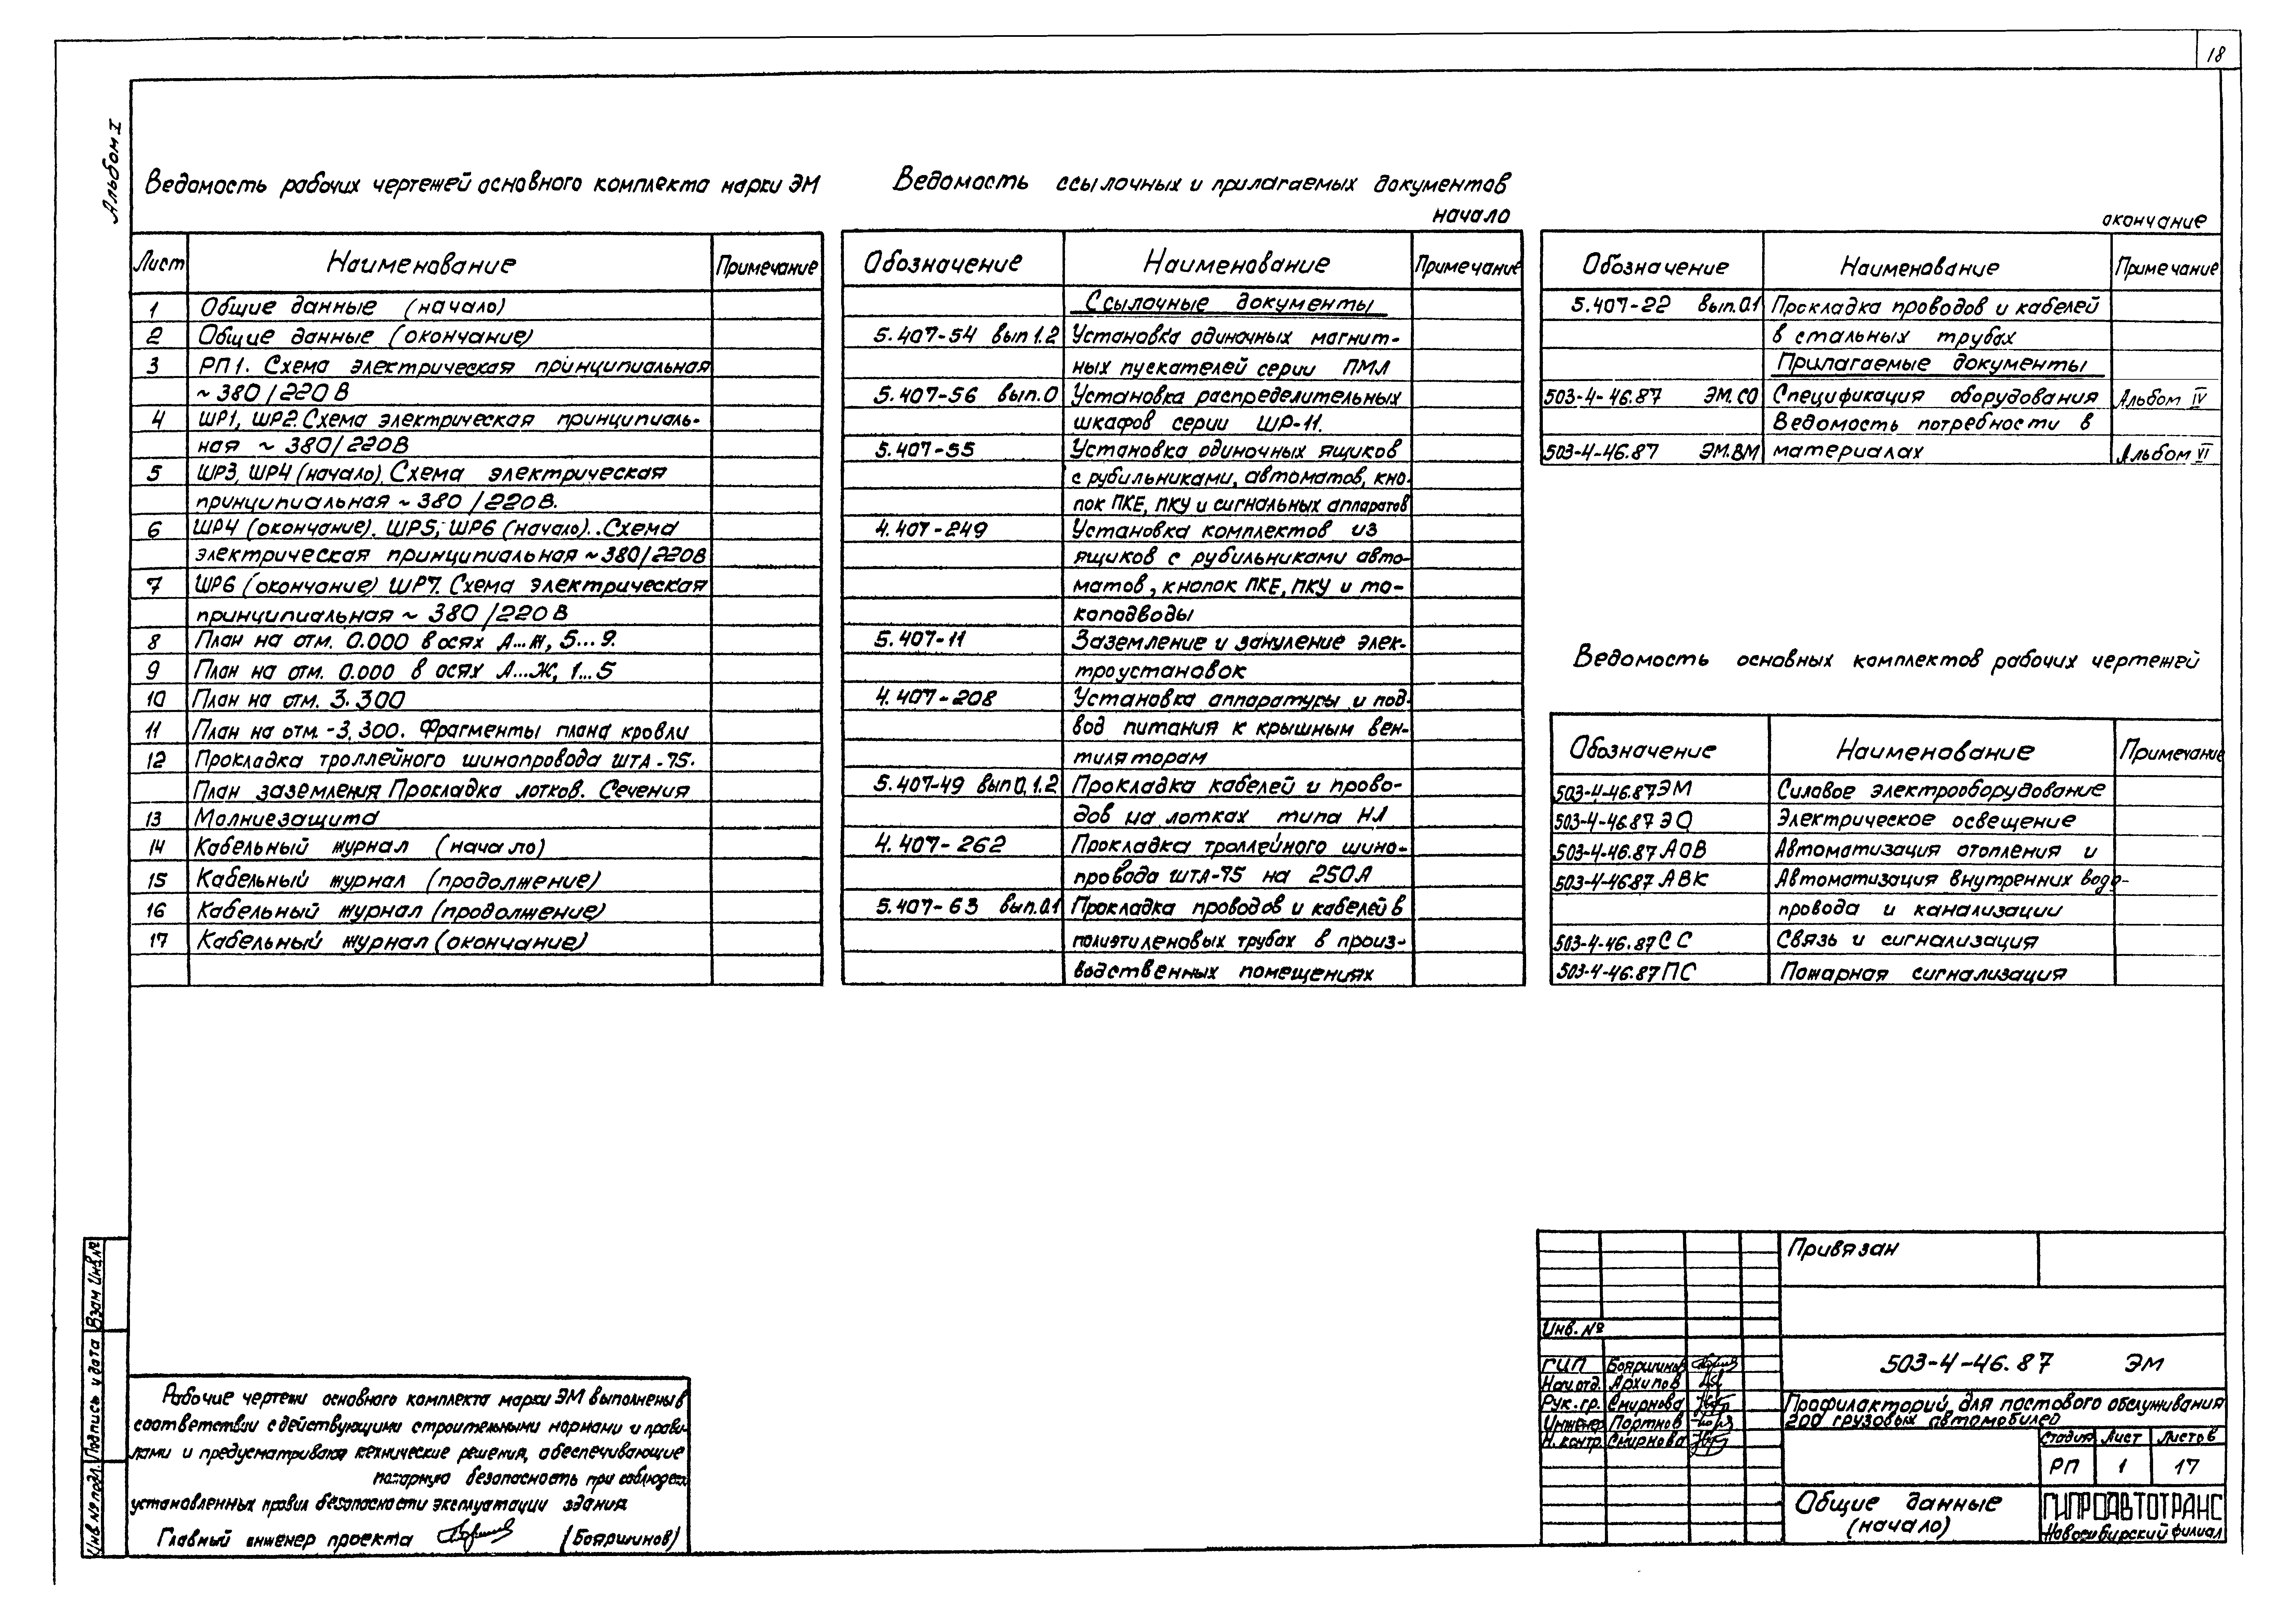 18
Альбом I
Ведомость рабочих чертежей основного комплекта марки ЭМ
Лист Наименование Примечание
1 Общие данные (начало)
2 Общие данные (окончание)
3 РП1. Схема электрическая принципиальная
~ 380/220В
4 ШР1, ШР2. Схема электрическая принципиаль-
ная ~ 380/220В
5 ШР3, ШР4 (начало). Схема электрическая
принципиальная ~ 380/220В.
6 ШР4 (окончание). ШР5, ШР6 (начало). Схема
электрическая принципиальная ~ 380/220В
7 ШР6 (окончание) ШР7. Схема электрическая
принципиальная ~ 380/220В
8 План на отм. 0.000 в осях А...Ж, 5...9.
9 План на отм. 0.000 в осях А...Ж, 1...5
10 План на отм. 3.300
11 План на отм. -3.300. Фрагменты плана кровли
12 Прокладка троллейного шинопровода ШТА-75.
План заземления Прокладка лотков. Сечения
13 Молниезащита
14 Кабельный журнал (начало)
15 Кабельный журнал (продолжение)
16 Кабельный журнал (продолжение)
17 Кабельный журнал (окончание)
Ведомость ссылочных и прилагаемых документов
начало
Обозначение Наименование Примечание
Ссылочные документы
5.407-54 вып 1.2 Установка одиночных магнит-
ных пускателей серии ПМЛ
5.407-56 вып.0 Установка распределительных
шкафов серии ШР-11.
5.407-55 Установка одиночных ящиков
с рубильниками, автоматов, кно-
пок ПКЕ, ПКУ и сигнальных аппаратов
4.407-249 Установка комплектов из
ящиков с рубильниками авто-
матов, кнопок ПКЕ, ПКУ и то-
коподводы
5.407-11 Заземление и зануление элек-
троустановок
4.407-208 Установка аппаратуры и под-
вод питания к крышным вен-
тиляторам
5.407-49 вып 0,1.2 Прокладка кабелей и прово-
дов на лотках типа НЛ
4.407-262 Прокладка троллейного шино-
провода ШТА-75 на 250А
5.407-63 вып.0.1 Прокладка проводов и кабелей в
полиэтиленовых трубах в произ-
водственных помещениях
окончание
Обозначение Наименование Примечание
5.407-22 вып.0.1 Прокладка проводов и кабелей
в стальных трубах
Прилагаемые документы
503-4-46.87 ЭМ.СО Спецификация оборудования Альбом IV
Ведомость потребности в
503-4-46.87 ЭМ.ВМ материалах Альбом VI
Ведомость основных комплектов рабочих чертежей
Обозначение Наименование Примечание
503-4-46.87 ЭМ Силовое электрооборудование
503-4-46.87 ЭО Электрическое освещение
503-4-46.87 АОВ Автоматизация отопления и
503-4-46.87 АВК Автоматизация внутренних водо-
провода и канализации
503-4-46.87 СС Связь и сигнализация
503-4-46.87 ПС Пожарная сигнализация
Взам Инв.№
Подпись и дата
Инв.№ подл.
Рабочие чертежи основного комплекта марки ЭМ выполнены в
соответствии с действующими строительными нормами и прави-
лами и предусматривают технические решения, обеспечивающие
пожарную безопасность при соблюден.
установленных правил безопасности эксплуатации здания
Главный инженер проекта (Бояршинов)
Привязан
Инв. №
ГИП Бояршинов
Нач.отд. Архипов
Рук.гр. Смирнова
Инженер Портнов
Н.контр. Смирнова
503-4-46.87 ЭМ
Профилакторий для постового обслуживания
200 грузовых автомобилей
Стадия Лист Листов
РП 1 17
Общие данные
(начало)
ГИПРОАВТОТРАНС
Новосибирский филиал